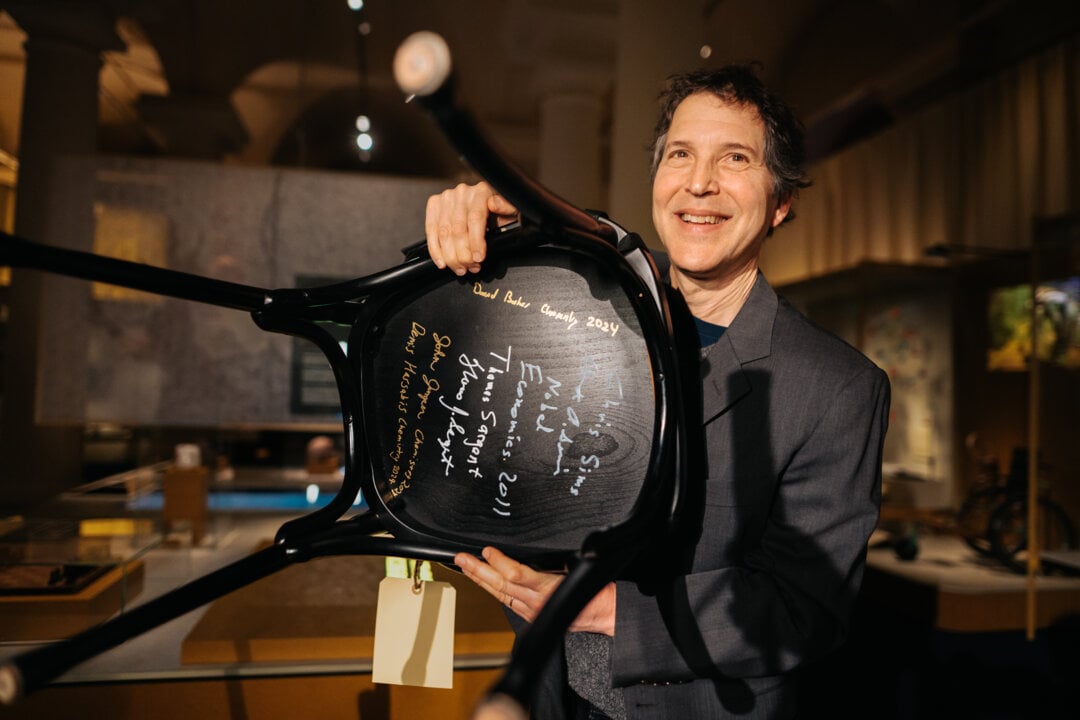 David Baker Chemistry 2024
Chris Sims
Nobel
Economics 2011
Thomas Sargent
John Jumper Chemistry 2024
Demis Hassabis Chemistry 2024